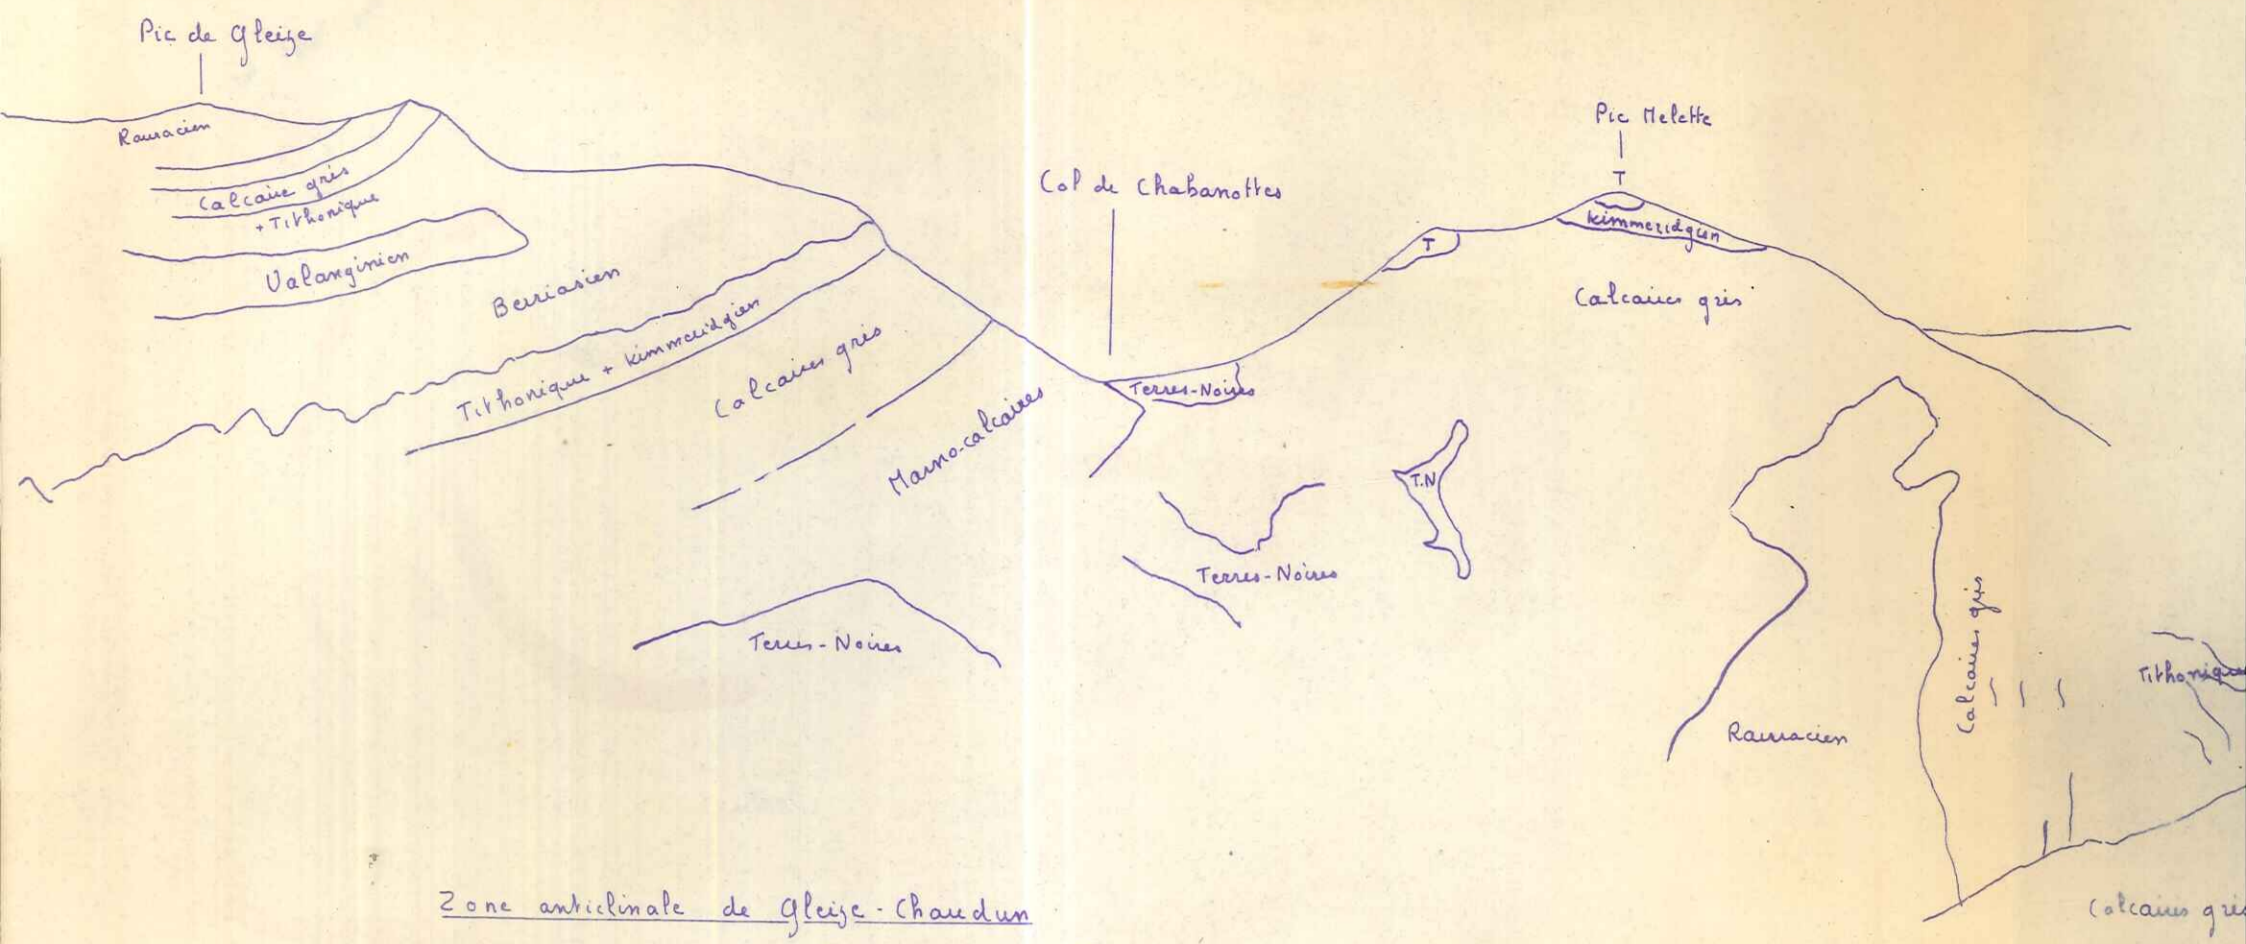 Pic de Gleize
Rauracien
Calcaire gris
+ Tithonique
Valanginien
Berriasien
Tithonique + Kimmeridgien
Calcaires gris
Marno-calcaires
Terres-Noires
Col de Chabanottes
Terres-Noires
Terres-Noires
T.N
T
Pic Melette
T
Kimmeridgien
Calcaires gris
Rauracien
Calcaires gris
Tithonique
Calcaires gris
Zone anticlinale de Gleize - Chaudun